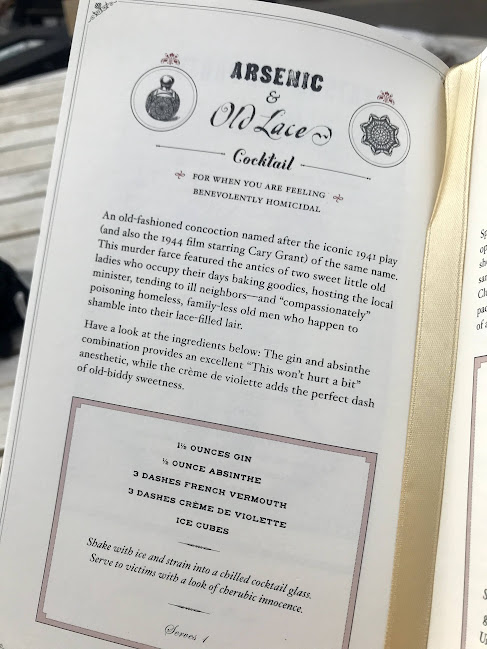 ARSENIC
&
Old Lace
Cocktail
FOR WHEN YOU ARE FEELING
BENEVOLENTLY HOMICIDAL
An old-fashioned concoction named after the iconic 1941 play
(and also the 1944 film starring Cary Grant) of the same name.
This murder farce featured the antics of two sweet little old
ladies who occupy their days baking goodies, hosting the local
minister, tending to ill neighbors—and “compassionately”
poisoning homeless, family-less old men who happen to
shamble into their lace-filled lair.
Have a look at the ingredients below: The gin and absinthe
combination provides an excellent “This won’t hurt a bit”
anesthetic, while the crème de violette adds the perfect dash
of old-biddy sweetness.
1½ OUNCES GIN
½ OUNCE ABSINTHE
3 DASHES FRENCH VERMOUTH
3 DASHES CRÈME DE VIOLETTE
ICE CUBES
Shake with ice and strain into a chilled cocktail glass.
Serve to victims with a look of cherubic innocence.
Serves 1